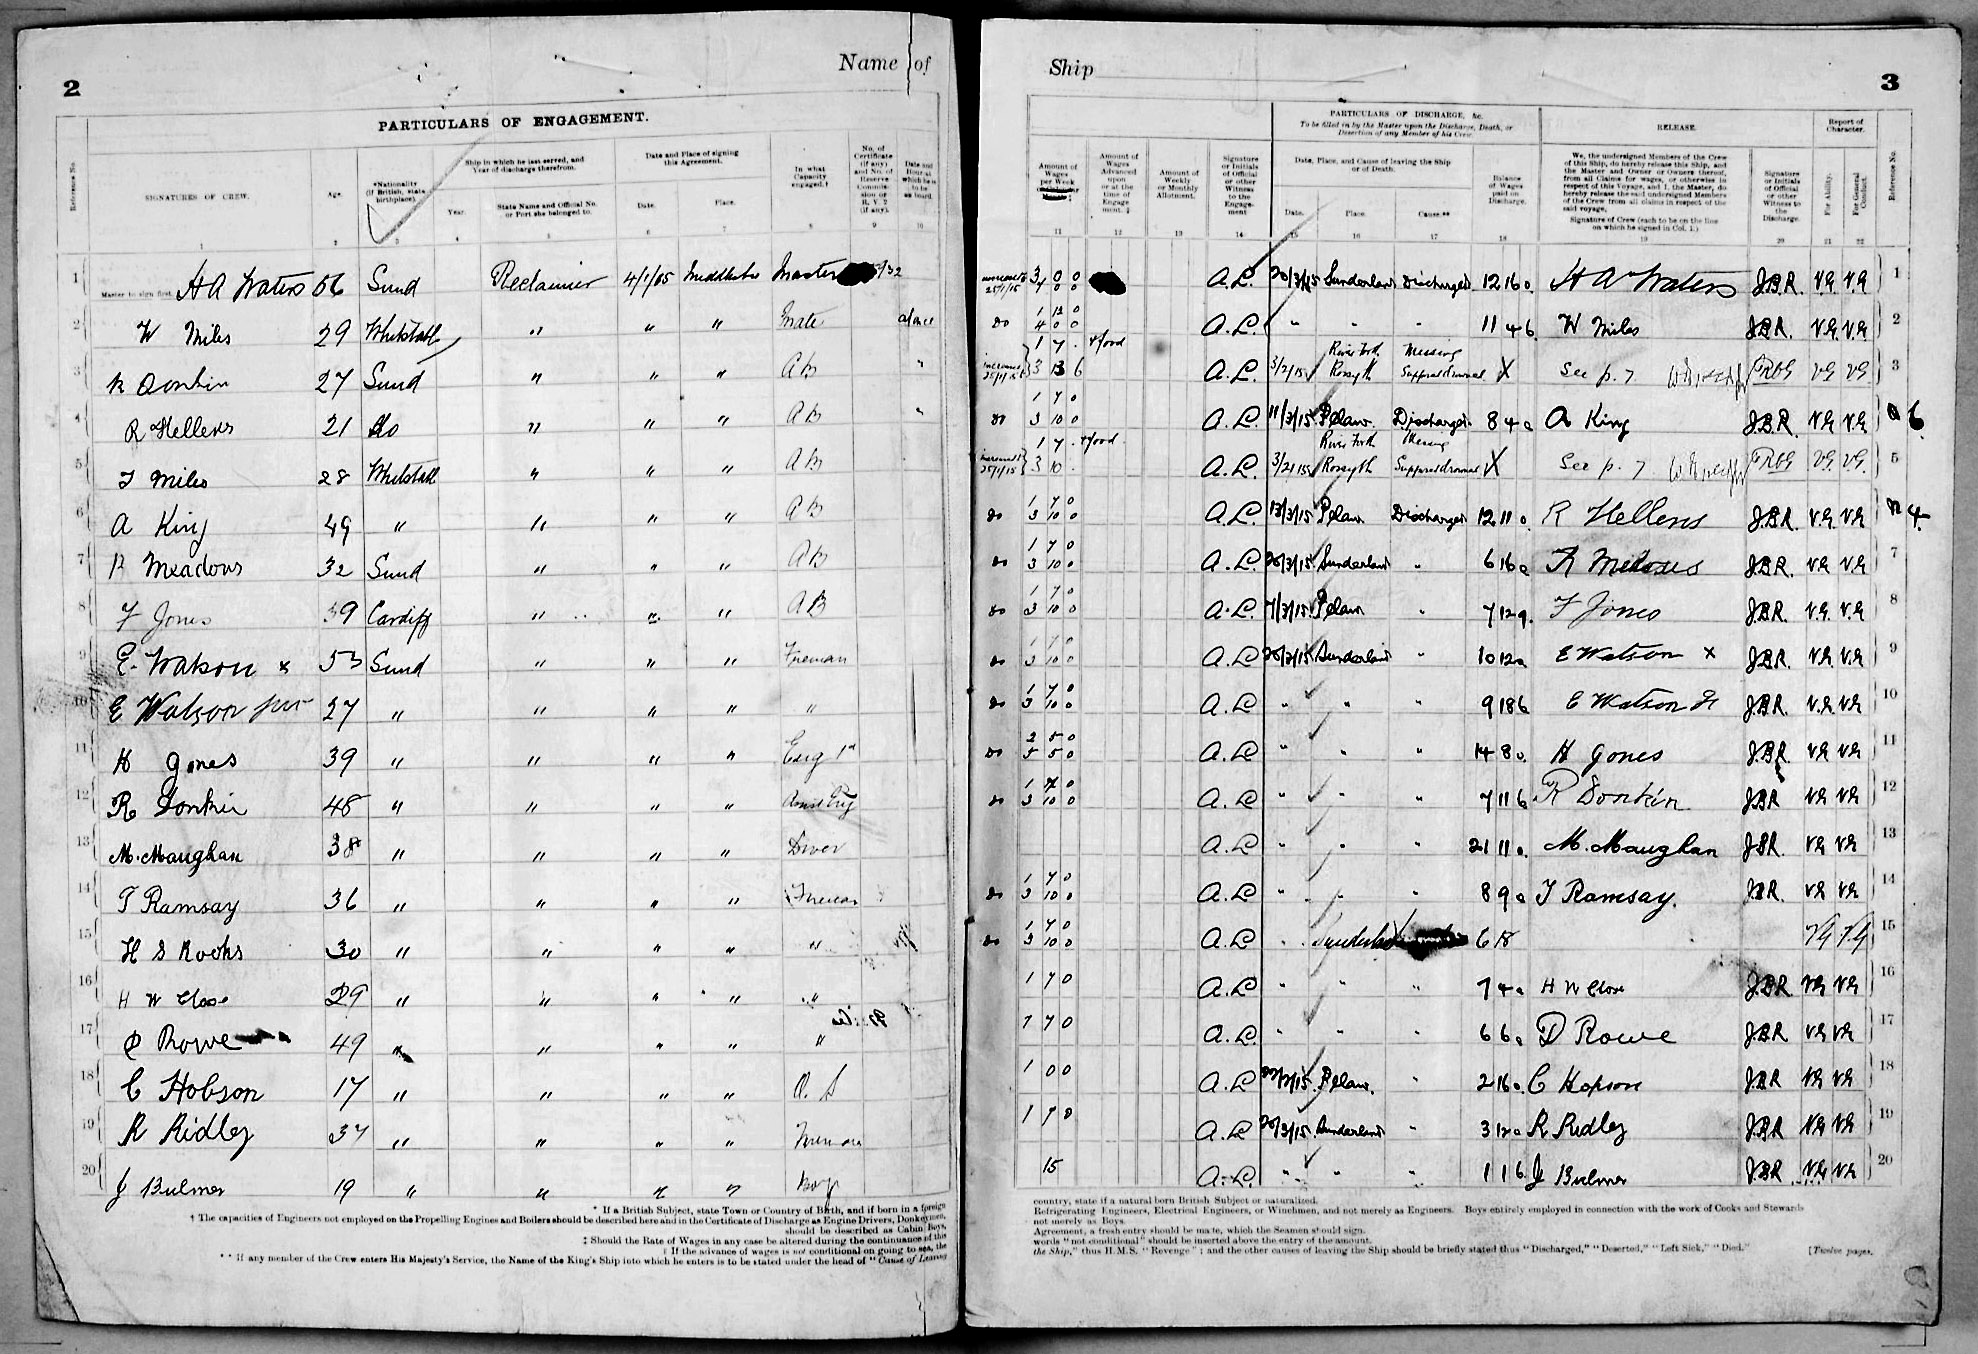 2
Name of
PARTICULARS OF ENGAGEMENT.
Reference No.
SIGNATURES OF CREW.
Age.
*Nationality (if British, state birthplace).
Ship in which he last served, and Year of discharge therefrom.
Year.
State Name and Official No. or Port she belonged to.
Date and Place of signing this Agreement.
Date.
Place.
In what Capacity engaged.†
No. of Certificate (if any) and No. of Reserve Commission or R. V. 2 (if any).
Date and Hour at which he is to be on board.
1 2 3 4 5 6 7 8 9 10
1 Master to sign first. H A Waters 56 Sund Reclaimer 4/1/05 Middlesbro Master
2 W Miles 29 Whitstable " " " Mate at once
3 R Donkin 27 Sund " " " A B "
4 R Hellens 21 Do " " " A B "
5 T Miles 28 Whitstable " " " A B
6 A King 49 " " " " A B
7 R Meadows 32 Sund " " " A B
8 F Jones 39 Cardiff " " " A B
9 E. Watson x 53 Sund " " " Fireman
10 E Watson junr 27 " " " " "
11 H Jones 39 " " " " Eng 1st
12 R Donkin 48 " " " "
13 M. Maughan 38 " " " " Diver
14 T Ramsay 36 " " " " Fireman
15 H S Rooks 30 " " " " "
16 H W Close 29 " " " " "
17 D Rowe 49 " " " " "
18 C Hobson 17 " " " " O. S
19 R Ridley 37 " " " " Fireman
20 J Bulmer 19 " " " " boy
* If a British Subject, state Town or Country of Birth, and if born in a foreign
† The capacities of Engineers not employed on the Propelling Engines and Boilers should be described here and in the Certificate of Discharge as Engine Drivers, Donkeymen,
should be described as Cabin Boys,
‡ Should the Rate of Wages in any case be altered during the continuance of this
§ If the advance of wages is not conditional on going to sea, the
** If any member of the Crew enters His Majesty's Service, the Name of the King's Ship into which he enters is to be stated under the head of "Cause of Leaving
Ship
3
PARTICULARS OF DISCHARGE, &c.
To be filled in by the Master upon the Discharge, Death, or Desertion of any Member of his Crew.
RELEASE.
Report of Character.
Amount of Wages per Week
Amount of Wages Advanced upon or at the time of Engagement. ‡
Amount of Weekly or Monthly Allotment.
Signature or Initials of Official or other Witness to the Engagement
Date, Place, and Cause of leaving the Ship or of Death.
Date.
Place.
Cause.**
Balance of Wages paid on Discharge.
We, the undersigned Members of the Crew of this Ship, do hereby release this Ship, and the Master and Owner or Owners thereof, from all Claims for wages, or otherwise in respect of this Voyage, and I, the Master, do hereby release the said undersigned Members of the Crew from all claims in respect of the said voyage.
Signature of Crew (each to be on the line on which he signed in Col. 1.)
Signature or Initials of Official or other Witness to the Discharge.
For Ability.
For General Conduct.
Reference No.
11 12 13 14 15 16 17 18 19 20 21 22
increased 25/1/15 3 0 0 4 0 0 A.L. 20/3/15 Sunderland Discharged 12 16 0 H A Waters J.B.R. V.G V.G 1
Do 1 12 0 4 0 0 A.L. " " " 11 4 6 W Miles J.B.R. V.G V.G 2
increased 25/1/15 1 7 . + food 3 13 6 A.L. 3/2/15 River Forth Rosyth Missing Supposed drowned X See p. 7 VG VG 3
Do 1 7 0 3 10 0 A.L. 11/3/15 Pelaw. Discharged 8 4 0 A King J.B.R. V.G V.G 6
increased 25/1/15 1 7 . + food 3 10 . A.L. 3/2/15 River Forth Rosyth Missing Supposed drowned X See p. 7 V.G. V.G. 5
Do 1 7 0 3 10 0 A.L. 13/3/15 Pelaw Discharged 12 11 0 R Hellens J.B.R. V.G. V.G 4
Do 1 7 0 3 10 0 A.L. Sunderland " 6 16 0 J.B.R. V.G V.G 7
Do 1 7 0 3 10 0 A.L. 7/3/15 Pelaw " 7 12 9. F Jones J.B.R. V.G. V.G 8
Do 1 7 0 3 10 0 A.L. Sunderland " 10 12 0 E Watson x J.B.R. V.G V.G 9
Do 1 7 0 3 10 0 A.L " " " 9 18 6 E Watson Jr J.B.R. V.G. V.G 10
Do 2 5 0 5 5 0 A.L " " " 14 8 0. H Jones J.B.R V.G V.G 11
Do 1 7 0 3 10 0 A.L " " " 7 11 6 R Donkin J.B.R V.G V.G 12
A.L " " " 21 11 0. M. Maughan J.B.R. V.G V.G 13
Do 1 7 0 3 10 0 A.L " " " 8 9 0 T Ramsay. J.B.R. V.G V.G 14
Do 1 7 0 3 10 0 A.L " Sunderland 6 18 VG VG 15
1 7 0 A.L " " " 7 4 0 H W Close J.B.R V.G V.G 16
1 7 0 A.L. " " " 6 6 0 D Rowe J.B.R V.G V.G 17
1 0 0 A.L Pelaw. " 2 16 0 C Hopson J.B.R V.G V.G 18
1 7 0 A.L Sunderland " 3 12 0 R Ridley J.B.R V.G V.G 19
15 A.L. " " " 1 1 6 J Bulmer J.B.R V.G V.G 20
country, state if a natural born British Subject or naturalized.
Refrigerating Engineers, Electrical Engineers, or Winchmen, and not merely as Engineers. Boys entirely employed in connection with the work of Cooks and Stewards
not merely as Boys.
Agreement, a fresh entry should be made, which the Seamen should sign.
words "not conditional" should be inserted above the entry of the amount.
the Ship," thus H.M.S. "Revenge"; and the other causes of leaving the Ship should be briefly stated thus "Discharged," "Deserted," "Left Sick," "Died."
[Twelve pages.